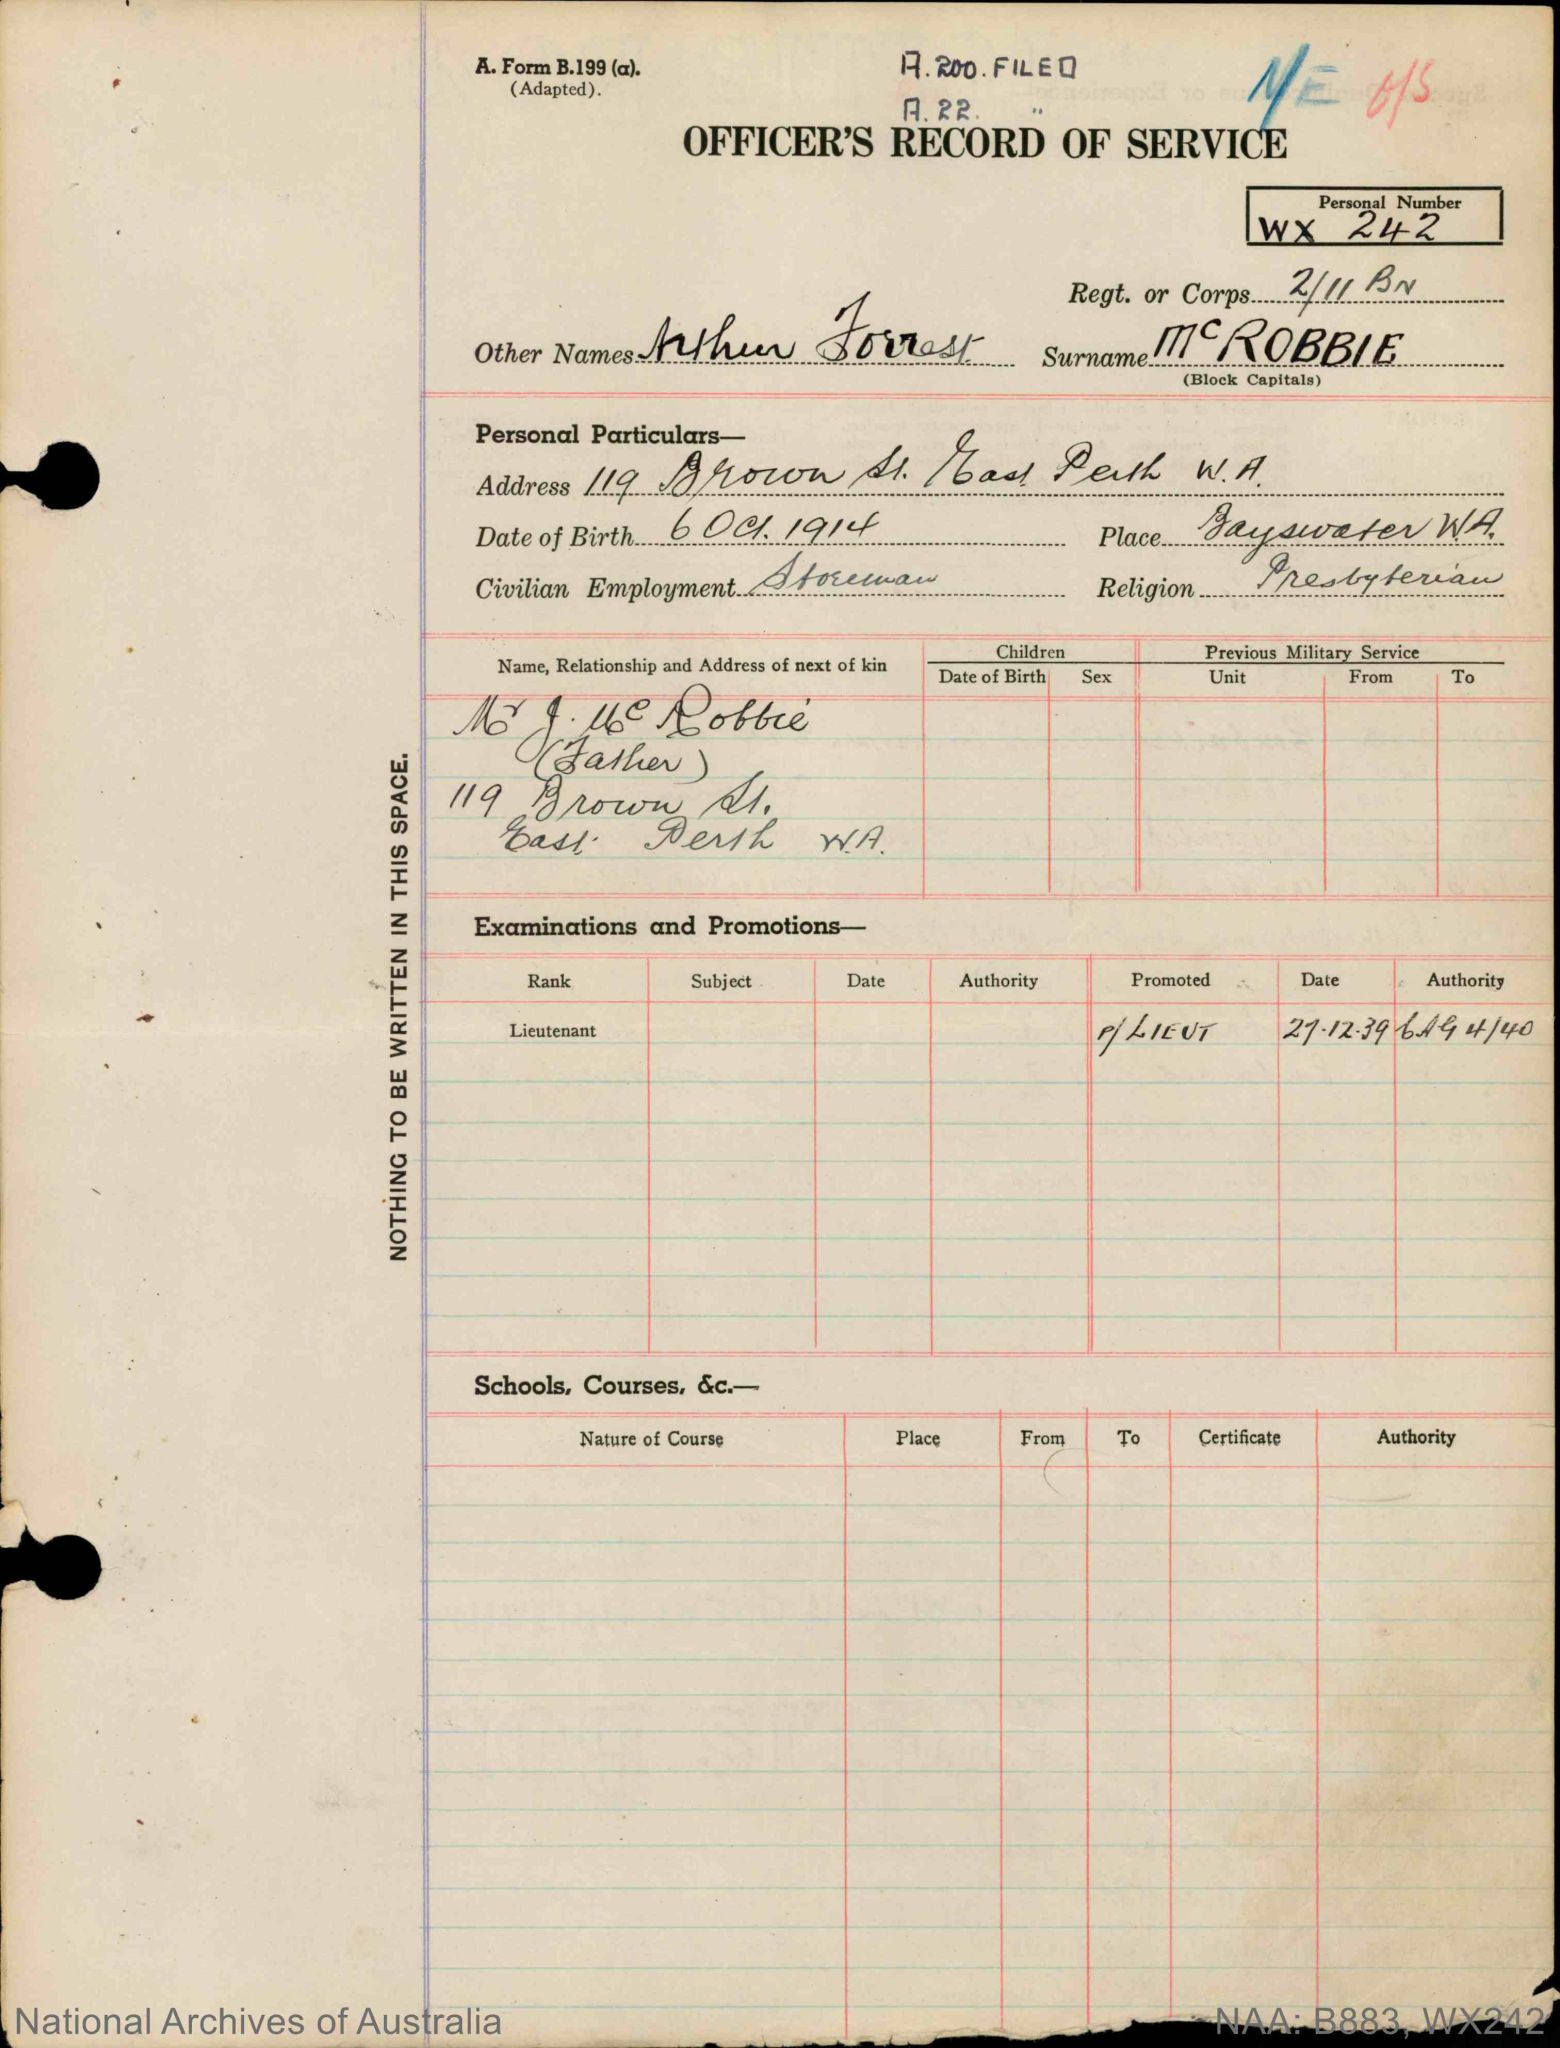 A. Form B.199 (a).
(Adapted).
A. 200. FILED
A. 22. "
N/E O/S
OFFICER'S RECORD OF SERVICE
Personal Number
WX 242
Regt. or Corps 2/11 BN
Other Names Arthur Forrest Surname McROBBIE
(Block Capitals)
Personal Particulars—
Address 119 Brown St. East Perth W.A.
Date of Birth 6 Oct. 1914 Place Bayswater W.A.
Civilian Employment Storeman Religion Presbyterian
Name, Relationship and Address of next of kin Children Previous Military Service
Date of Birth Sex Unit From To
Mr J. McRobbie
(Father)
119 Brown St.
East Perth W.A.
NOTHING TO BE WRITTEN IN THIS SPACE.
Examinations and Promotions—
Rank Subject Date Authority Promoted Date Authority
Lieutenant P/LIEUT 27.12.39 4/40
Schools, Courses, &c.—
Nature of Course Place From To Certificate Authority
National Archives of Australia NAA: B883, WX242